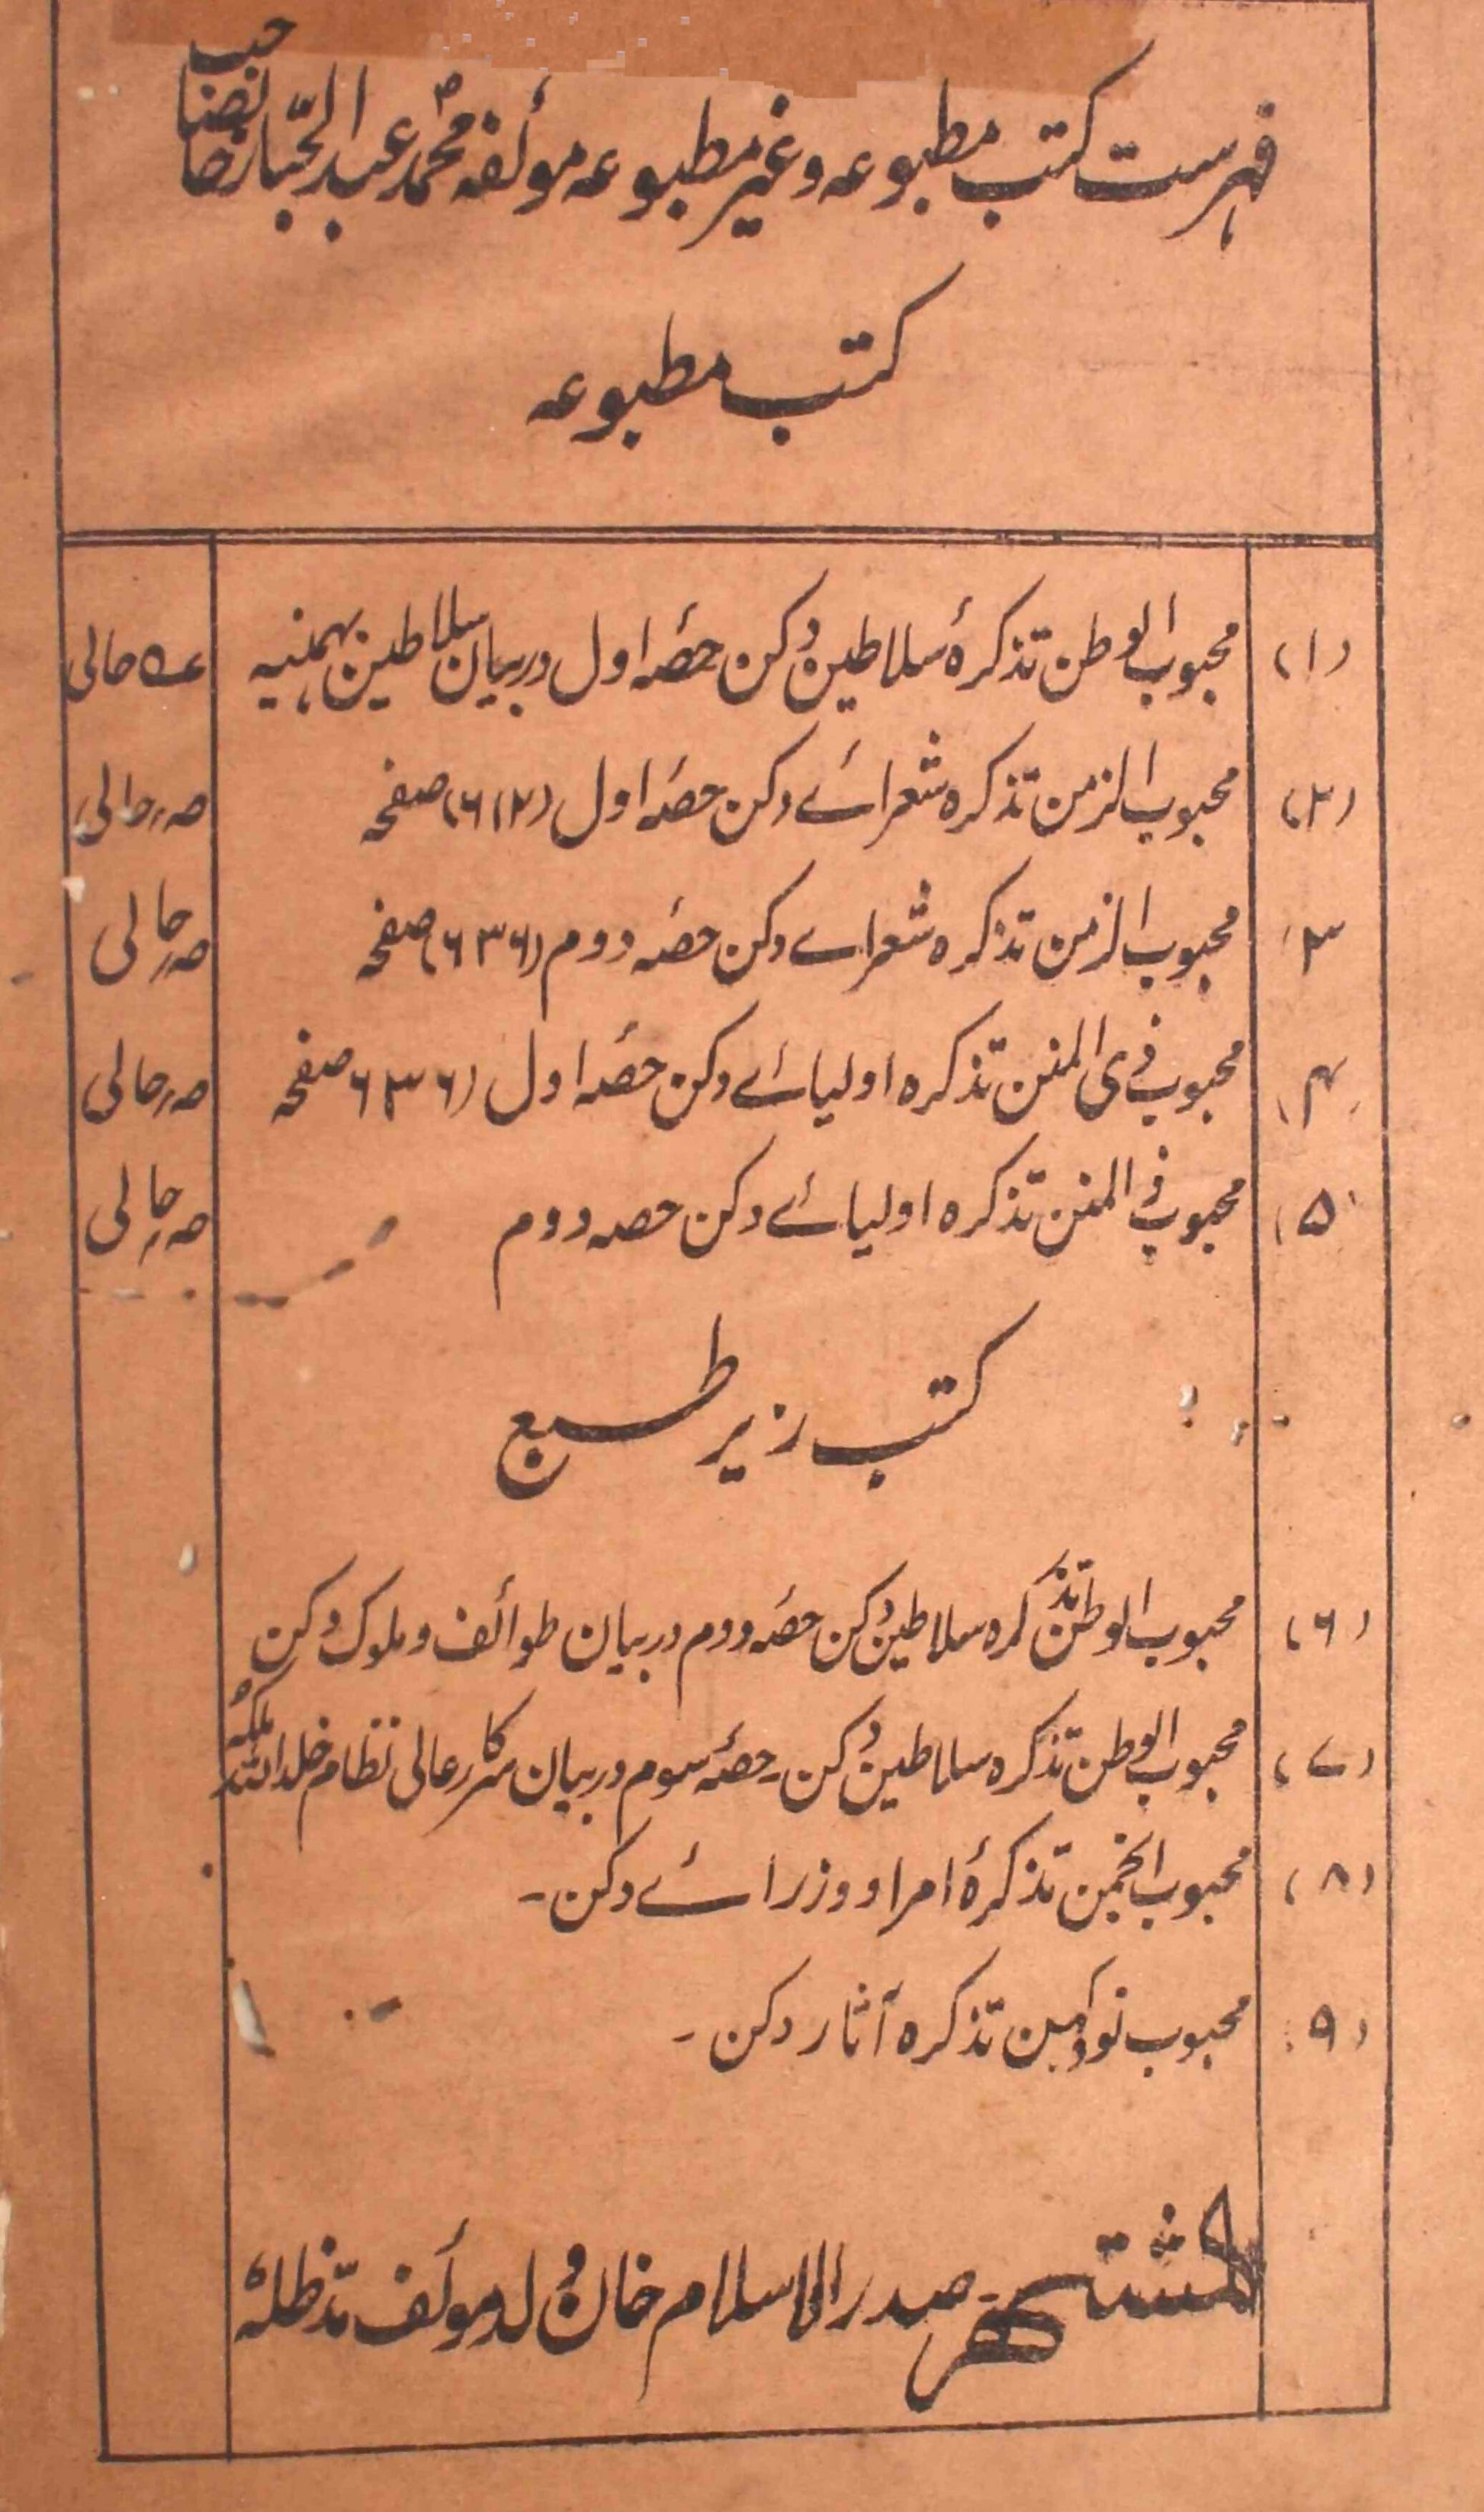 فہرست کتب مطبوعہ و غیر مطبوعہ مؤلفہ محمد عبد الجبار خانصاحب
کتب مطبوعہ
(۱) محبوب الوطن تذکرۂ سلاطین دکن حصۂ اول در بیان سلاطین بہمنیہ حالی
(۲) محبوب الزمن تذکرہ شعرائے دکن حصۂ اول (۶۱۲) صفحہ صہ حالی
۳ محبوب الزمن تذکرہ شعراے دکن حصۂ دوم (۶۳۶) صفحہ صہ حالی
۴ محبوب ذی المنن تذکرہ اولیائے دکن حصۂ اول (۶۳۶ صفحہ صہ حالی
(۵) محبوب ذی المنن تذکرہ اولیائے دکن حصہ دوم صہ حالی
کتب زیر طبع
(۶) محبوب الوطن تذکرہ سلاطین دکن حصۂ دوم در بیان طوائف و ملوک دکن
(۷) محبوب الوطن تذکرہ سلاطین دکن۔ حصۂ سوم در بیان سرکار عالی نظام خلد اللہ ملکہ
(۸) محبوب انجمن تذکرۂ امرا و وزرائے دکن۔
(۹) محبوب تذکرہ آثار دکن۔
المشتہر صدر الاسلام خان ولد مؤلف مدظلہٗ